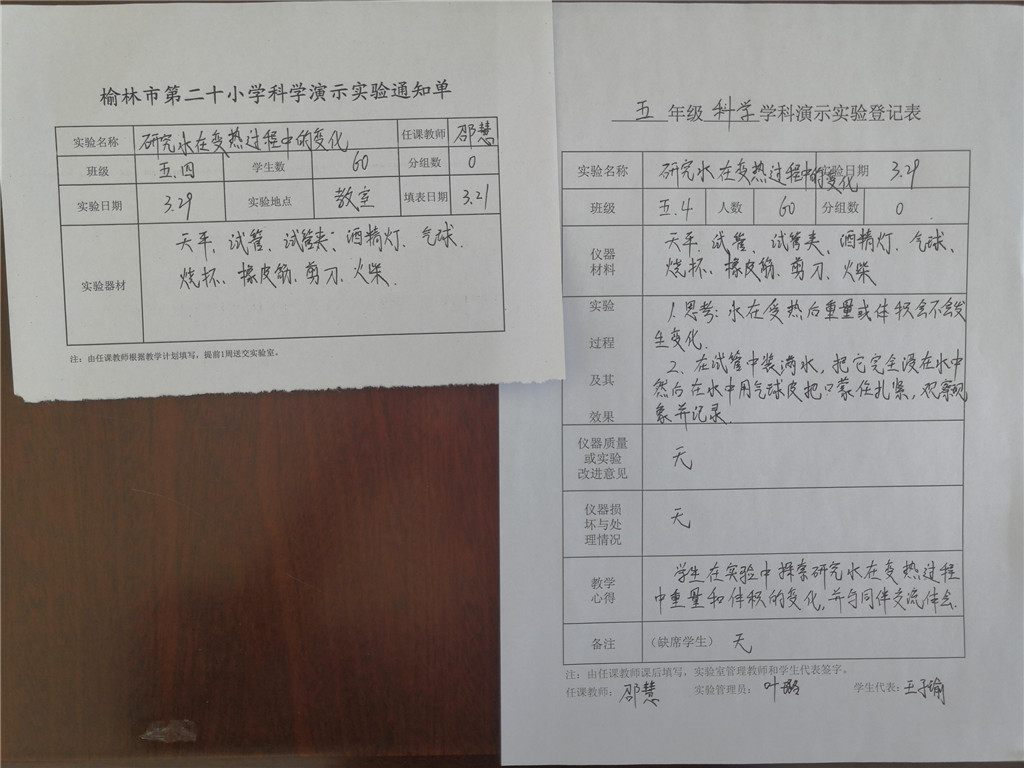 榆林市第二十小学科学演示实验通知单
实验名称 研究水在受热过程中的变化 任课教师 邵慧
班级 五.四 学生数 60 分组数 0
实验日期 3.29 实验地点 教室 填表日期 3.21
实验器材 天平、试管、试管夹、酒精灯、气球、
烧杯、橡皮筋、剪刀、火柴.
注：由任课教师根据教学计划填写，提前1周送交实验室。
五 年级 科学 学科演示实验登记表
实验名称 研究水在受热过程中的变化 实验日期 3.29
班级 五.4 人数 60 分组数 0
仪器材料 天平、试管、试管夹、酒精灯、气球、
烧杯、橡皮筋、剪刀、火柴
实验过程及其效果
1.思考：水在受热后重量或体积会不会发
生变化.
2、在试管中装满水，把它完全浸在水中
然后在水中用气球皮把口蒙住扎紧，观察现
象并记录.
仪器质量或实验改进意见 无
仪器损坏与处理情况 无
教学心得 学生在实验中探索研究水在受热过程
中重量和体积的变化，并与同伴交流体会.
备注 （缺席学生） 无
注：由任课教师课后填写，实验室管理教师和学生代表签字。
任课教师：邵慧 实验管理员：叶璐 学生代表：王子瑜